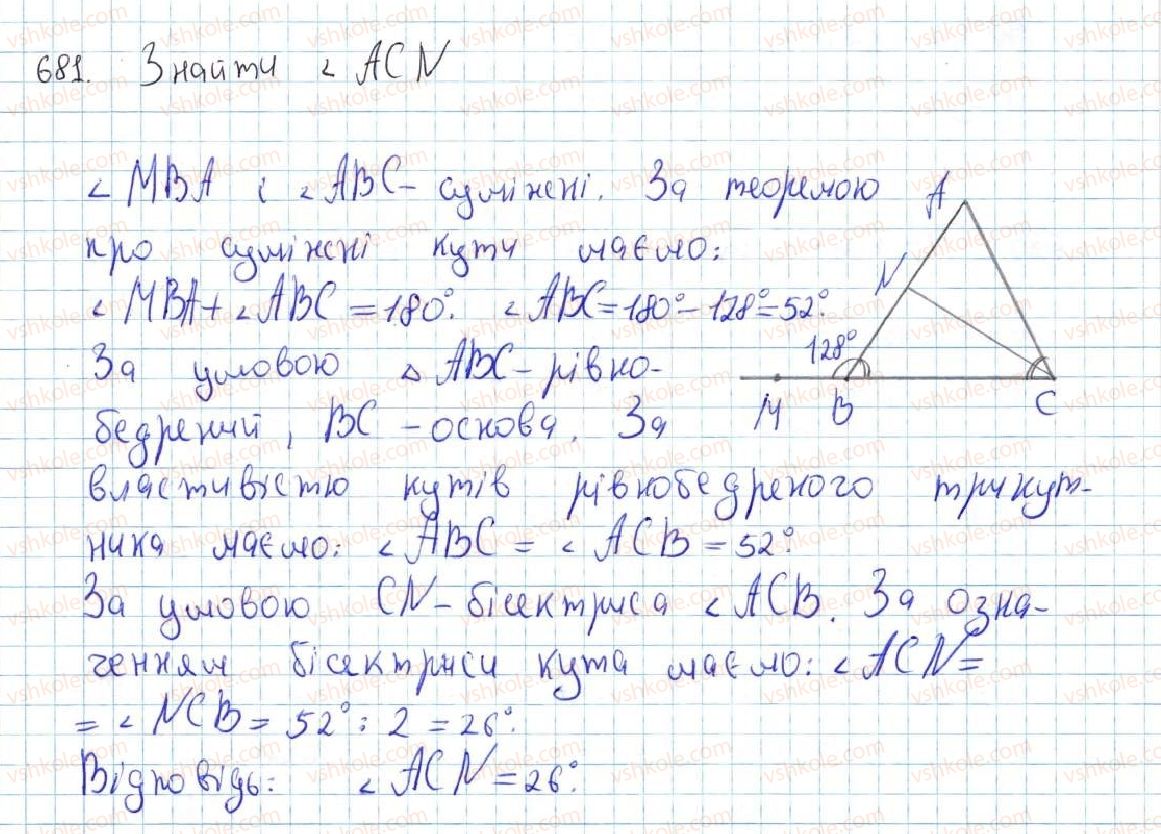 681. Знайти ∠ ACN
∠ MBA і ∠ ABC - суміжні. За теоремою
про суміжні кути маємо:
∠ MBA + ∠ ABC = 180°. ∠ ABC = 180° - 128° = 52°.
За умовою △ ABC - рівно-
бедрений, BC - основа. За
властивістю кутів рівнобедреного трикут-
ника маємо: ∠ ABC = ∠ ACB = 52°.
За умовою CN - бісектриса ∠ ACB. За озна-
ченням бісектриси кута маємо: ∠ ACN =
= ∠ NCB = 52° : 2 = 26°.
Відповідь: ∠ ACN = 26°.
A
N
128°
M B C